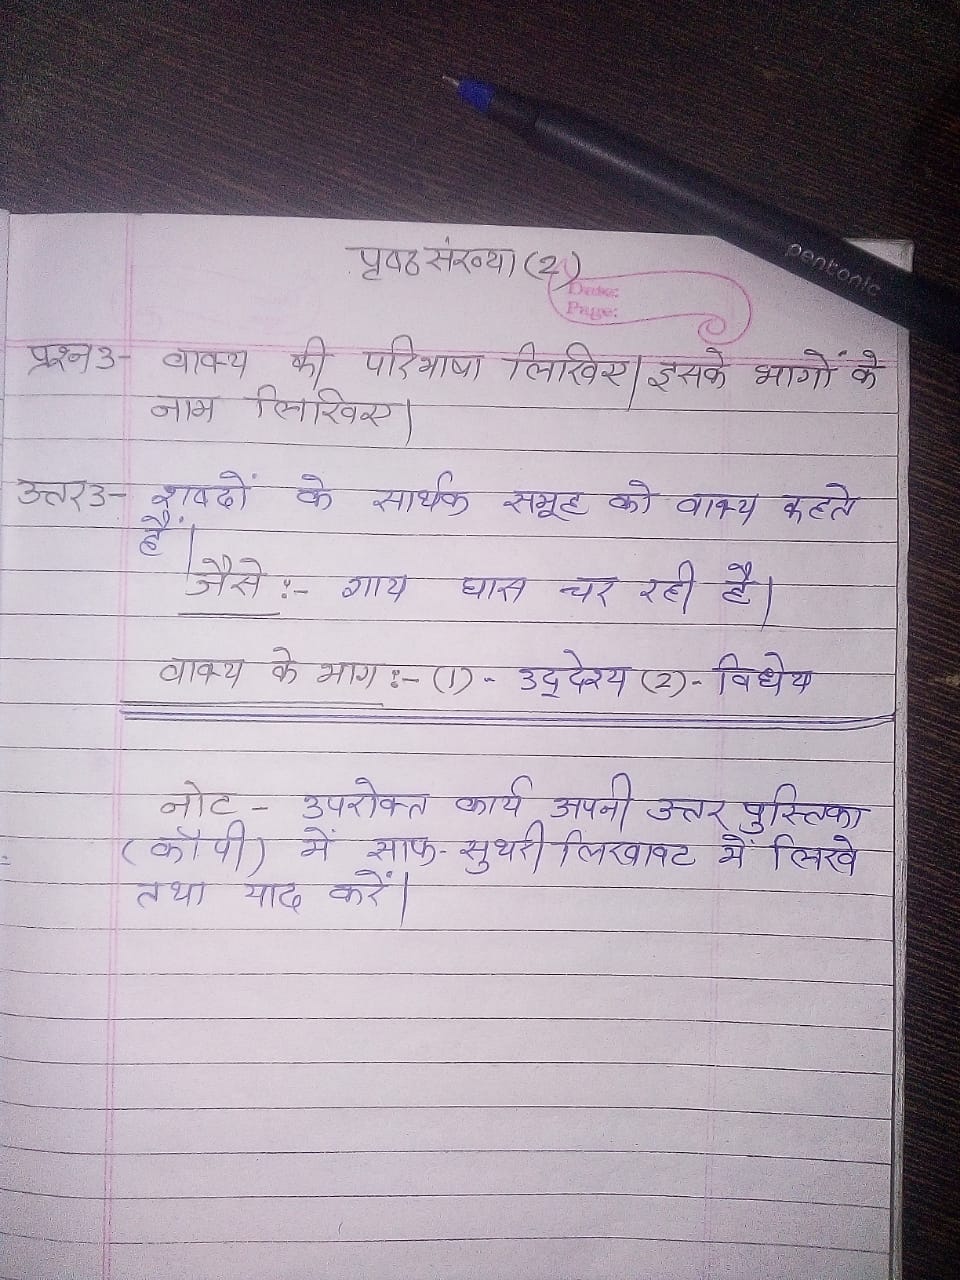 pentonic
पृष्ठ संख्या (2)
Date:
Page:
प्रश्न 3- वाक्य की परिभाषा लिखिए। इसके भागों के
नाम लिखिए।
उत्तर 3- शबदों के सार्थक समूह को वाक्य कहते
हैं।
जैसे :- गाय घास चर रही है।
वाक्य के भाग :- (1) - उद्देश्य (2) - विधेय
नोट - उपरोक्त कार्य अपनी उत्तर पुस्तिका
(कॉपी) में साफ-सुथरी लिखावट में लिखे
तथा याद करें।